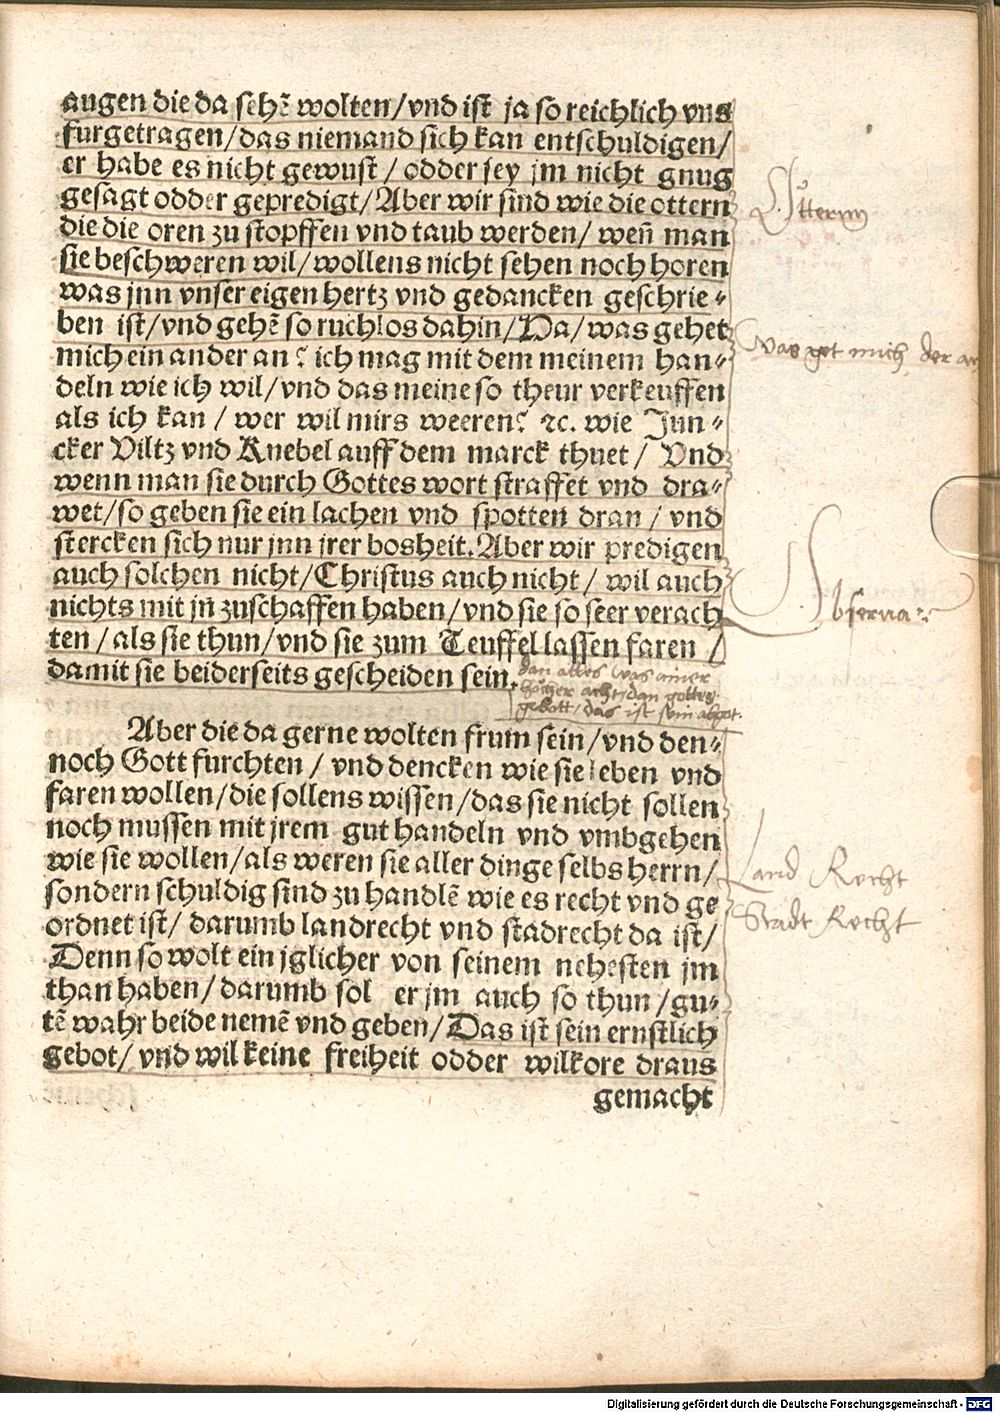 augen die da sehē wolten/vnd ist ja so reichlich vns
furgetragen/das niemand sich kan entschuldigen/
er habe es nicht gewust/odder sey jm nicht gnug
gesagt odder gepredigt/Aber wir sind wie die ottern
die die oren zu stopffen vnd taub werden/weñ man
sie beschweren wil/wollens nicht sehen noch horen
was jnn vnser eigen hertz vnd gedancken geschrie⸗
ben ist/vnd gehē so ruchlos dahin/Da/was gehet
mich ein ander an? ich mag mit dem meinem han⸗
deln wie ich wil/vnd das meine so theur verkeuffen
als ich kan/wer wil mirs weeren? ꝛc. wie Jun⸗
cker Viltz vnd Knebel auff dem marck thuet/Vnd
wenn man sie durch Gottes wort straffet vnd dra⸗
wet/so geben sie ein lachen vnd spotten dran/vnd
stercken sich nur jnn jrer bosheit. Aber wir predigen
auch solchen nicht/Christus auch nicht/wil auch
nichts mit jñ zuschaffen haben/vnd sie so seer verach
ten/als sie thun/vnd sie zum Teuffel lassen faren/
damit sie beiderseits gescheiden sein.
dan alles was ainer
höher acht/dan gottes
gebott/das ist sein abgot.
Aber die da gerne wolten frum sein/vnd den⸗
noch Gott furchten/vnd dencken wie sie leben vnd
faren wollen/die sollens wissen/das sie nicht sollen
noch mussen mit jrem gut handeln vnd vmbgehen
wie sie wollen/als weren sie aller dinge selbs herrn/
sondern schuldig sind zu handlē wie es recht vnd ge
ordnet ist/darumb landrecht vnd stadrecht da ist/
Denn so wolt ein jglicher von seinem nehesten jm
than haben/darumb sol er jm auch so thun/gu⸗
tē wahr beide nemē vnd geben/Das ist sein ernstlich
gebot/vnd wil keine freiheit odder wilkore draus
gemacht
Ottern
Was get mich der an
Observa
Land Recht
Stadt Recht
Digitalisierung gefördert durch die Deutsche Forschungsgemeinschaft - DFG